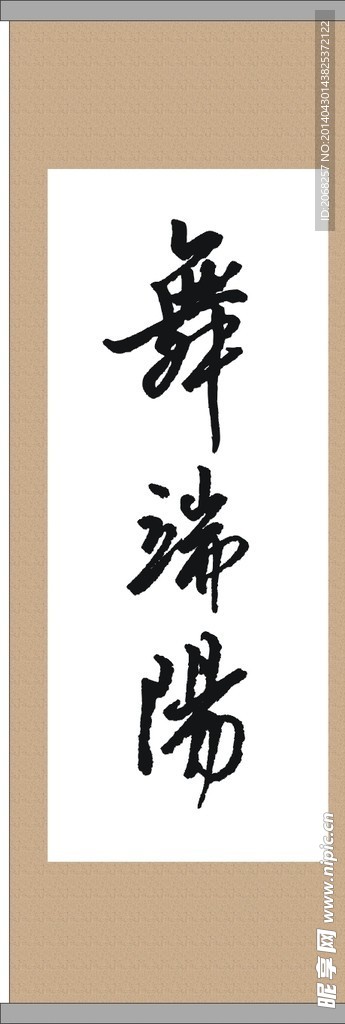 舞端陽
ID:2068257 NO:20140430143825372122
昵享网 www.nipic.cn